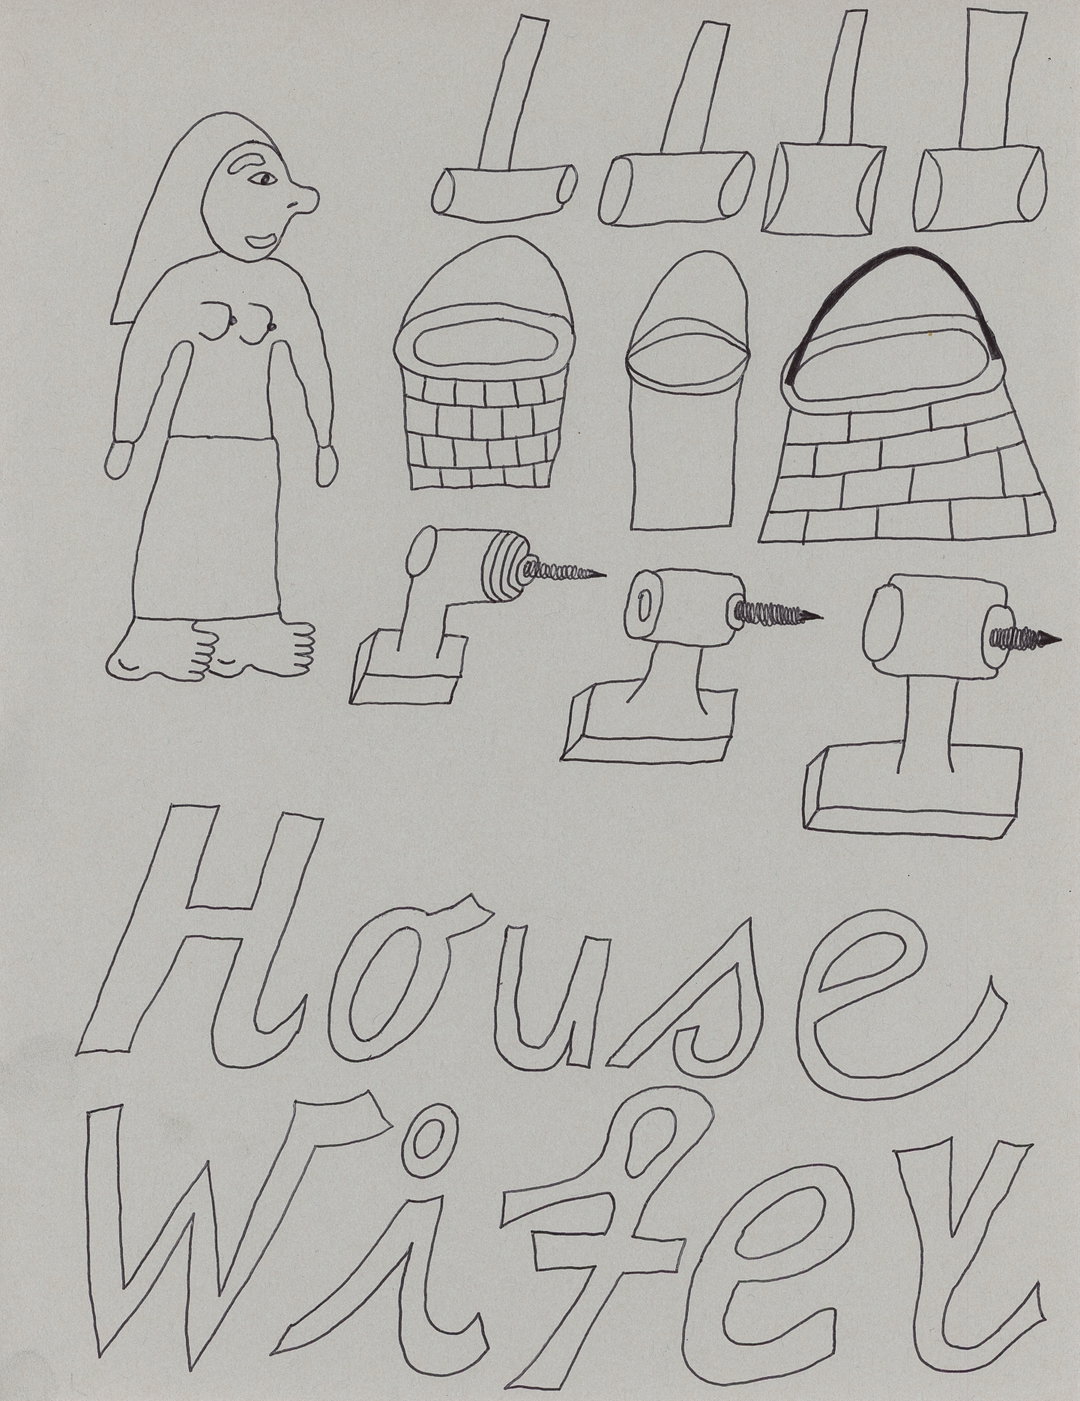 House
Wifey